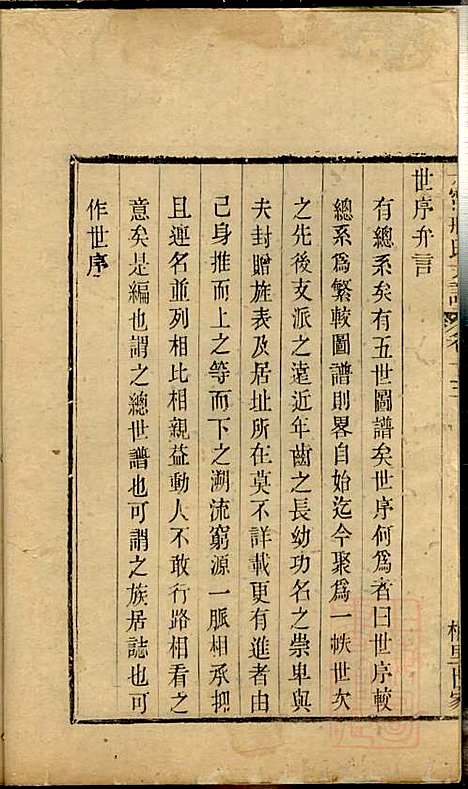 世序弁言
有總系矣有五世圖譜矣世序何為者曰世序較
總系為繁較圖譜則畧自始迄今聚為一帙世次
之先後支派之遠近年齒之長幼功名之崇卑與
夫封贈旌表及居址所在莫不詳載更有進者由
己身推而上之等而下之溯流窮源一脈相承抑
且連名並列相比相親益動人不敢行路相看之
意矣是編也謂之總世譜也可謂之族居誌也可
作世序